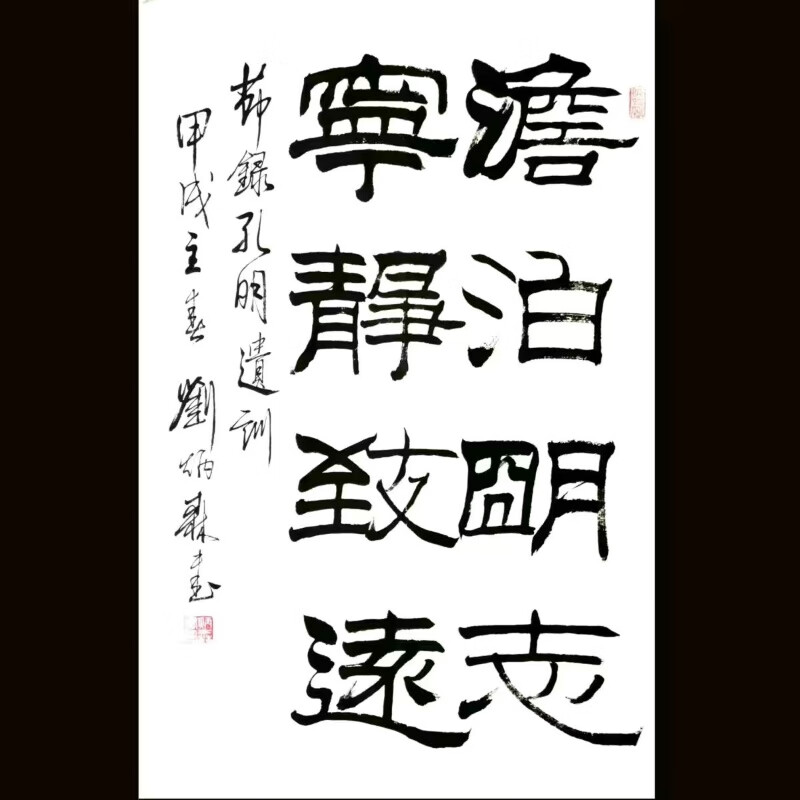 澹泊朙志
寧靜致遠
節錄孔明遺訓
甲戌立春 劉炳森書